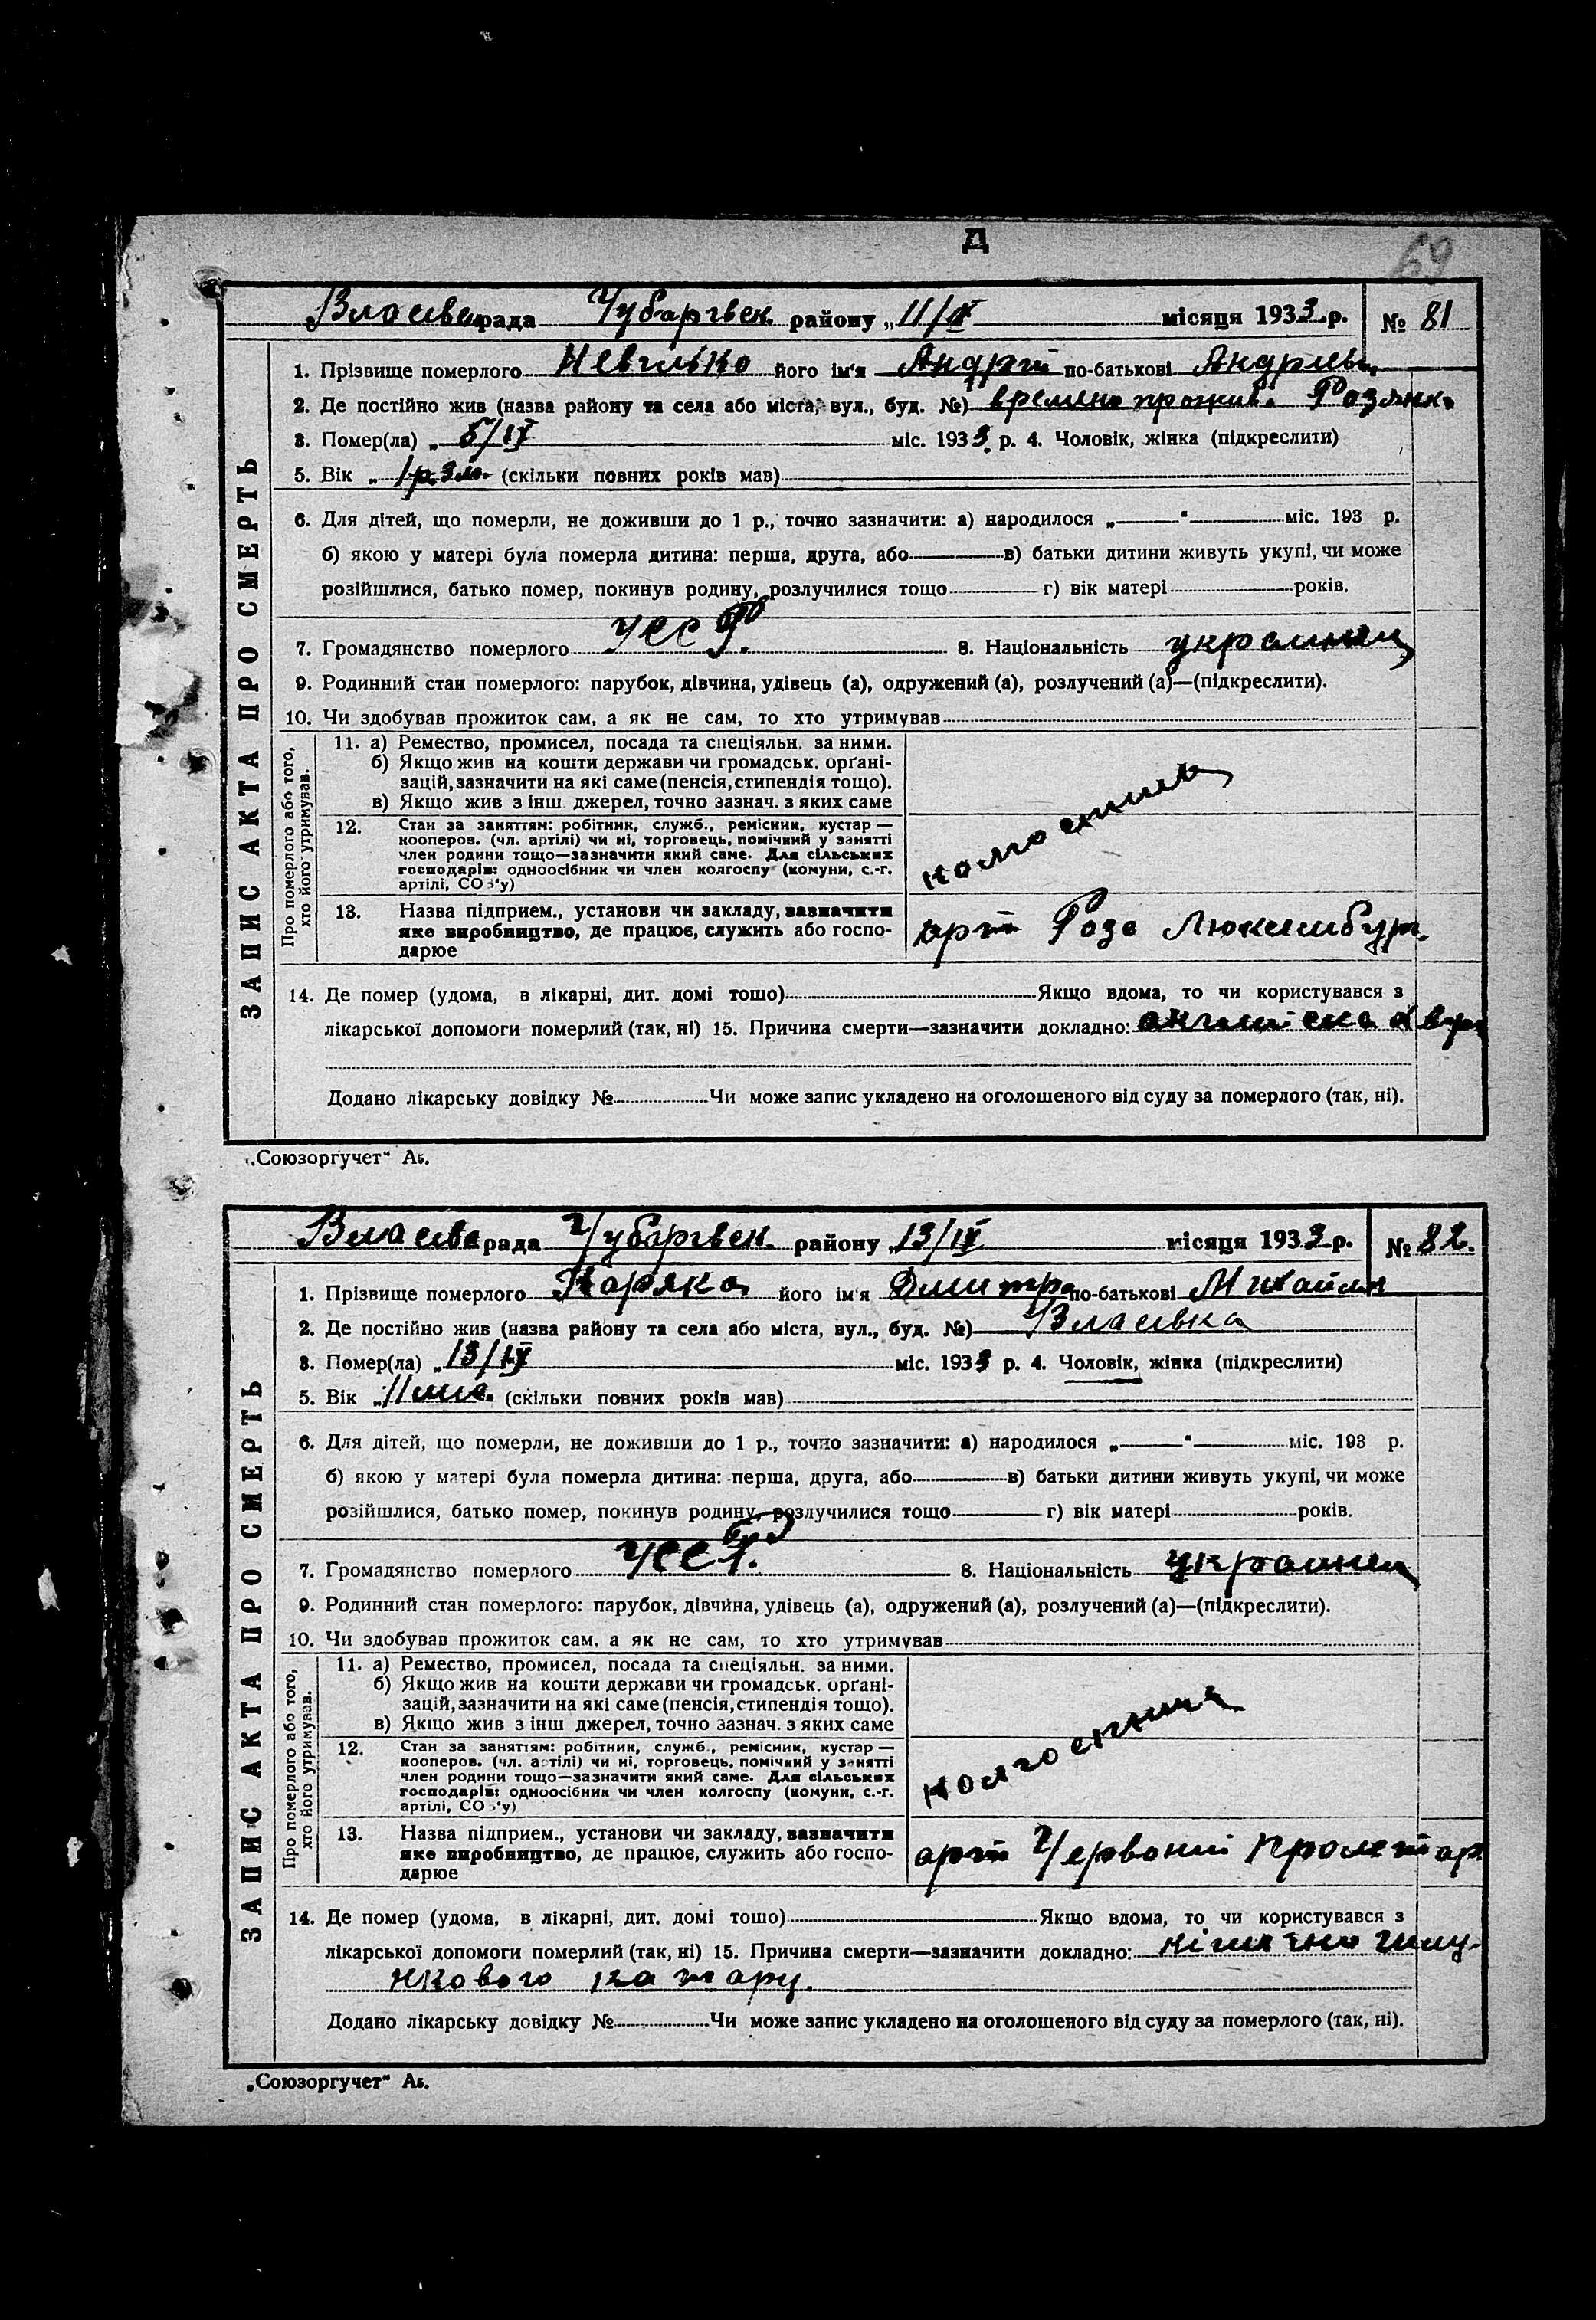 Д
69
Власівс рада Чубарівск. району „11/IX місяця 1933 р. № 81
ЗАПИС АКТА ПРО СМЕРТЬ
1. Прізвище померлого його ім'я Андрій по-батькові Андрієв
2. Де постійно жив (назва району та села або міста, вул., буд. №)
3. Помер(ла) „ 5/IX міс. 1933 р. 4. Чоловік, жінка (підкреслити)
5. Вік „ 1 р. 3 м. (скільки повних років мав)
6. Для дітей, що померли, не доживши до 1 р., точно зазначити: а) народилося „ “ міс. 193 р.
б) якою у матері була померла дитина: перша, друга, або в) батьки дитини живуть укупі, чи може
розійшлися, батько помер, покинув родину, розлучилися тощо г) вік матері років.
7. Громадянство померлого УССР. 8. Національність украінец
9. Родинний стан померлого: парубок, дівчина, удівець (а), одружений (а), розлучений (а)—(підкреслити).
10. Чи здобував прожиток сам, а як не сам, то хто утримував
Про померлого або того,
хто його утримував.
11. а) Ремество, промисел, посада та спеціяльн. за ними.
б) Якщо жив на кошти держави чи громадськ. орґані-
зацій, зазначити на які саме (пенсія, стипендія тощо).
в) Якщо жив з інш джерел, точно зазнач. з яких саме
12. Стан за заняттям: робітник, служб., ремісник, кустар —
кооперов. (чл. артілі) чи ні, торговець, помічний у занятті
член родини тощо—зазначити який саме. Для сільських
господарів: одноосібник чи член колгоспу (комуни, с.-г.
артілі, СОЗ'у)
колгоспник
13. Назва підприєм., установи чи закладу, зазначити
яке виробництво, де працює, служить або госпо-
дарює
арт Роза Люксембург.
14. Де помер (удома, в лікарні, дит. домі тощо) Якщо вдома, то чи користувався з
лікарської допомоги померлий (так, ні) 15. Причина смерти—зазначити докладно: англійска хвор
Додано лікарську довідку № Чи може запис укладено на оголошеного від суду за померлого (так, ні).
„Союзоргучет“ Аб.
Власівс рада Чубарівск. району „13/IX місяця 1933 р. № 82.
ЗАПИС АКТА ПРО СМЕРТЬ
1. Прізвище померлого Коряка його ім'я Дмитро по-батькові Михайлов
2. Де постійно жив (назва району та села або міста, вул., буд. №) Власівка
3. Помер(ла) „ 13/IX міс. 1933 р. 4. Чоловік, жінка (підкреслити)
5. Вік „ 11 міс. (скільки повних років мав)
6. Для дітей, що померли, не доживши до 1 р., точно зазначити: а) народилося „ “ міс. 193 р.
б) якою у матері була померла дитина: перша, друга, або в) батьки дитини живуть укупі, чи може
розійшлися, батько помер, покинув родину, розлучилися тощо г) вік матері років.
7. Громадянство померлого УССР. 8. Національність украінец
9. Родинний стан померлого: парубок, дівчина, удівець (а), одружений (а), розлучений (а)—(підкреслити).
10. Чи здобував прожиток сам, а як не сам, то хто утримував
Про померлого або того,
хто його утримував.
11. а) Ремество, промисел, посада та спеціяльн. за ними.
б) Якщо жив на кошти держави чи громадськ. орґані-
зацій, зазначити на які саме (пенсія, стипендія тощо).
в) Якщо жив з інш джерел, точно зазнач. з яких саме
12. Стан за заняттям: робітник, служб., ремісник, кустар —
кооперов. (чл. артілі) чи ні, торговець, помічний у занятті
член родини тощо—зазначити який саме. Для сільських
господарів: одноосібник чи член колгоспу (комуни, с.-г.
артілі, СОЗ'у)
колгоспник
13. Назва підприєм., установи чи закладу, зазначити
яке виробництво, де працює, служить або госпо-
дарює
арт Червоний Пролетар
14. Де помер (удома, в лікарні, дит. домі тощо) Якщо вдома, то чи користувався з
лікарської допомоги померлий (так, ні) 15. Причина смерти—зазначити докладно: кішечно
нкового катару.
Додано лікарську довідку № Чи може запис укладено на оголошеного від суду за померлого (так, ні).
„Союзоргучет“ Аб.